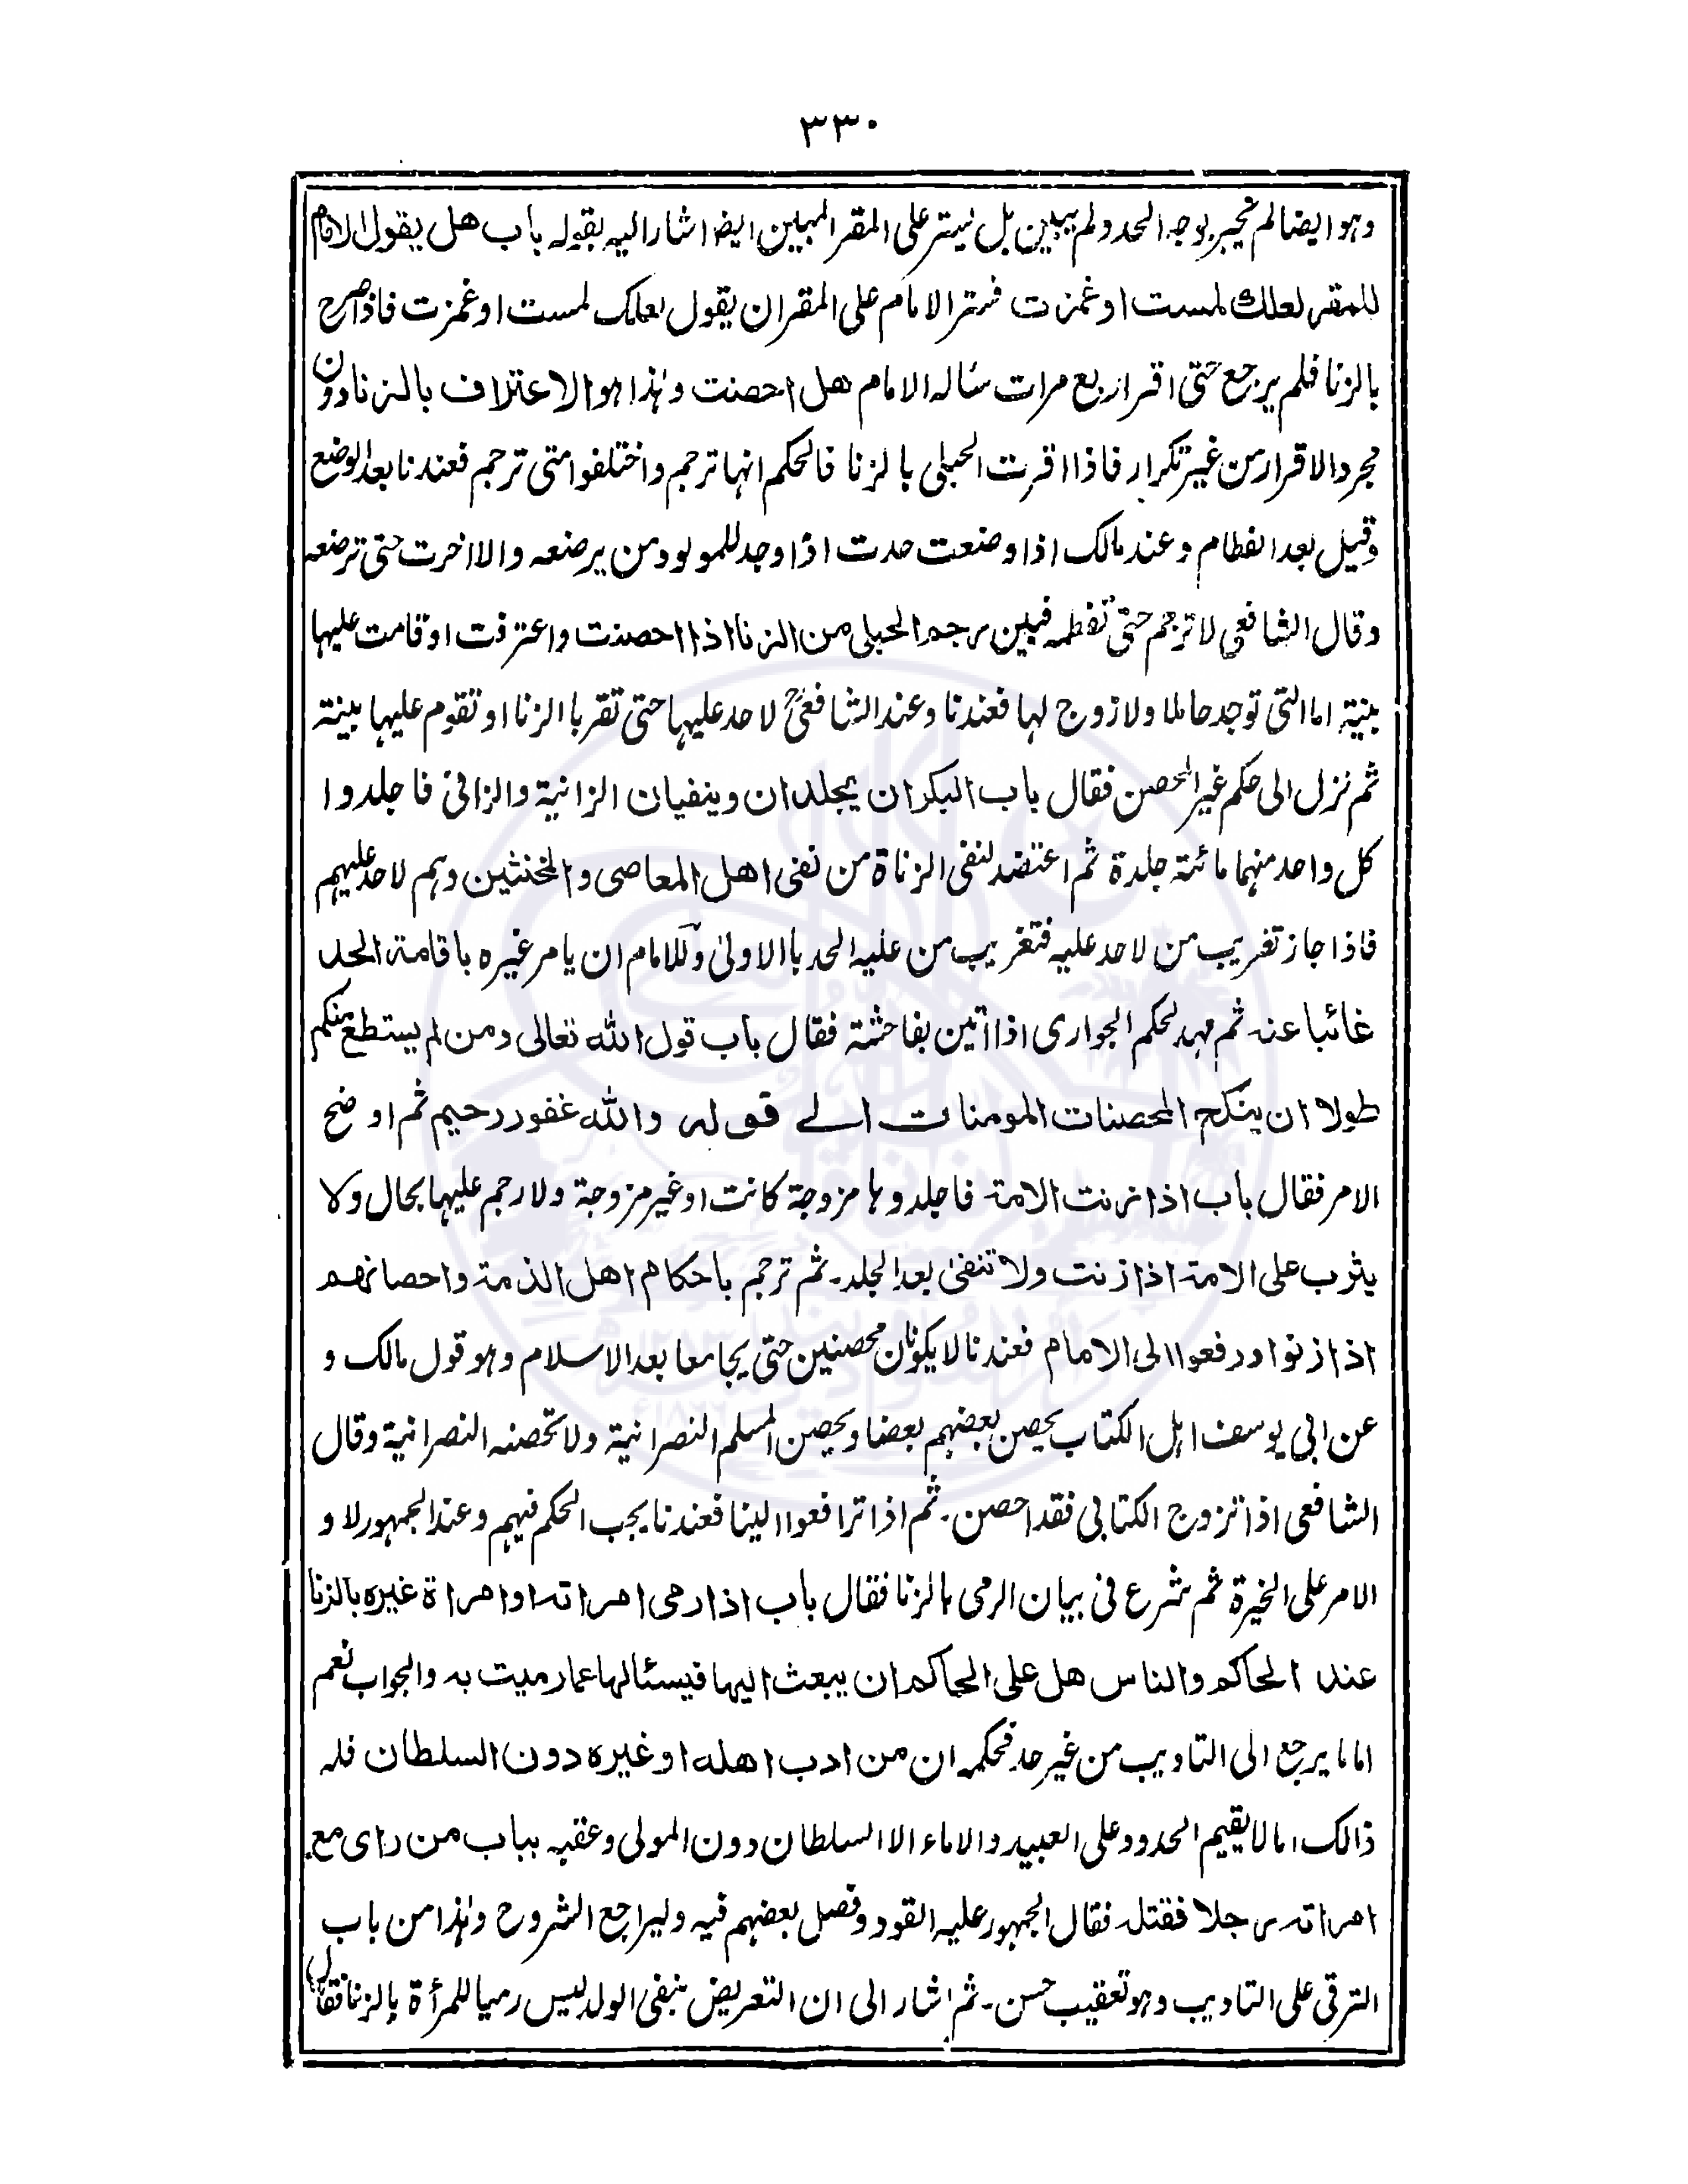 ٣٣٠
وهو ايضا لم يخبر بوجه الحد ولم يبين بل يستر على المقر المبين ايضا اشار اليه بقوله باب هل يقول الامام
للمقر لعلك لمست او غمزت فستر الامام على المقر ان يقول لعلك لمست او غمزت فاذا صرح
بالزنا فلم يرجع حتى اقر اربع مرات ساله الامام هل احصنت وهذا هو الاعتراف بالزنا دون
مجرد الاقرار من غير تكرار فاذا اقرت الحبلى بالزنا فالحكم انها ترجم واختلفوا متى ترجم فعندنا بعد الوضع
وقيل بعد الفطام وعند مالك اذا وضعت حدت اذا وجد للمولود من يرضعه والا اخرت حتى ترضعه
وقال الشافعى لا ترجم حتى تفطمه فبين رجم الحبلى من الزنا اذا احصنت واعترفت او قامت عليها
بينة اما التى توجد حاملا ولا زوج لها فعندنا وعند الشافعىؒ لا حد عليها حتى تقر با الزنا او تقوم عليها بينة
ثم نزل الى حكم غير المحصن فقال باب البكران يجلدان وينفيان الزانية والزانى فاجلدوا
كل واحد منهما مائة جلدة ثم اعتضد لنفى الزناة من نفى اهل المعاصى والمخنثين وهم لا حد عليهم
فاذا جاز تغريب من لا حد عليه فتغريب من عليه الحد با الاولىٰ وللامام ان يامر غيره باقامة الحد
غائبا عنه ثم مهد لحكم الجوارى اذا اتين بفاحشة فقال باب قول الله تعالى ومن لم يستطع منكم
طولا ان ينكح المحصنات المومنات الى قوله والله غفور رحيم ثم اوضح
الامر فقال باب اذا زنت الامة فاجلدوها مزوجة كانت او غير مزوجة ولا رجم عليها بحال ولا
يثرب على الامة اذا زنت ولا تنفىٰ بعد الجلد۔ ثم ترجم باحكام اهل الذمة واحصانهم
اذا زنوا ورفعوا الى الامام فعندنا لا يكونان محصنين حتى يجامعا بعد الاسلام وهو قول مالك و
عن ابى يوسف اهل الكتاب يحصن بعضهم بعضا ويحصن المسلم النصرانية ولا تحصنه النصرانية وقال
الشافعى اذا تزوج الكتابى فقد احصن۔ ثم اذا ترافعوا الينا فعندنا يجب الحكم فيهم وعند الجمهور لا و
الامر على الخيرة ثم شرع فى بيان الرمى بالزنا فقال باب اذا رمى امراته او امراة غيره بالزنا
عند الحاكم والناس هل على الحاكم ان يبعث اليها فيسئالها عما رميت به والجواب نعم
اما ما يرجع الى التاديب من غير حد فحكمه ان من ادب اهله او غيره دون السلطان فله
ذالك اما لا يقيم الحدود على العبيد والاماء الا السلطان دون المولى وعقبه بباب من راى مع
امراته رجلا فقتله فقال الجمهور عليه القود وفصل بعضهم فيه وليراجع الشروح وهذا من باب
الترقى على التاديب وهو تعقيب حسن۔ ثم اشار الى ان التعريض بنفى الولد ليس رميا للمرأة بالزنا فقال